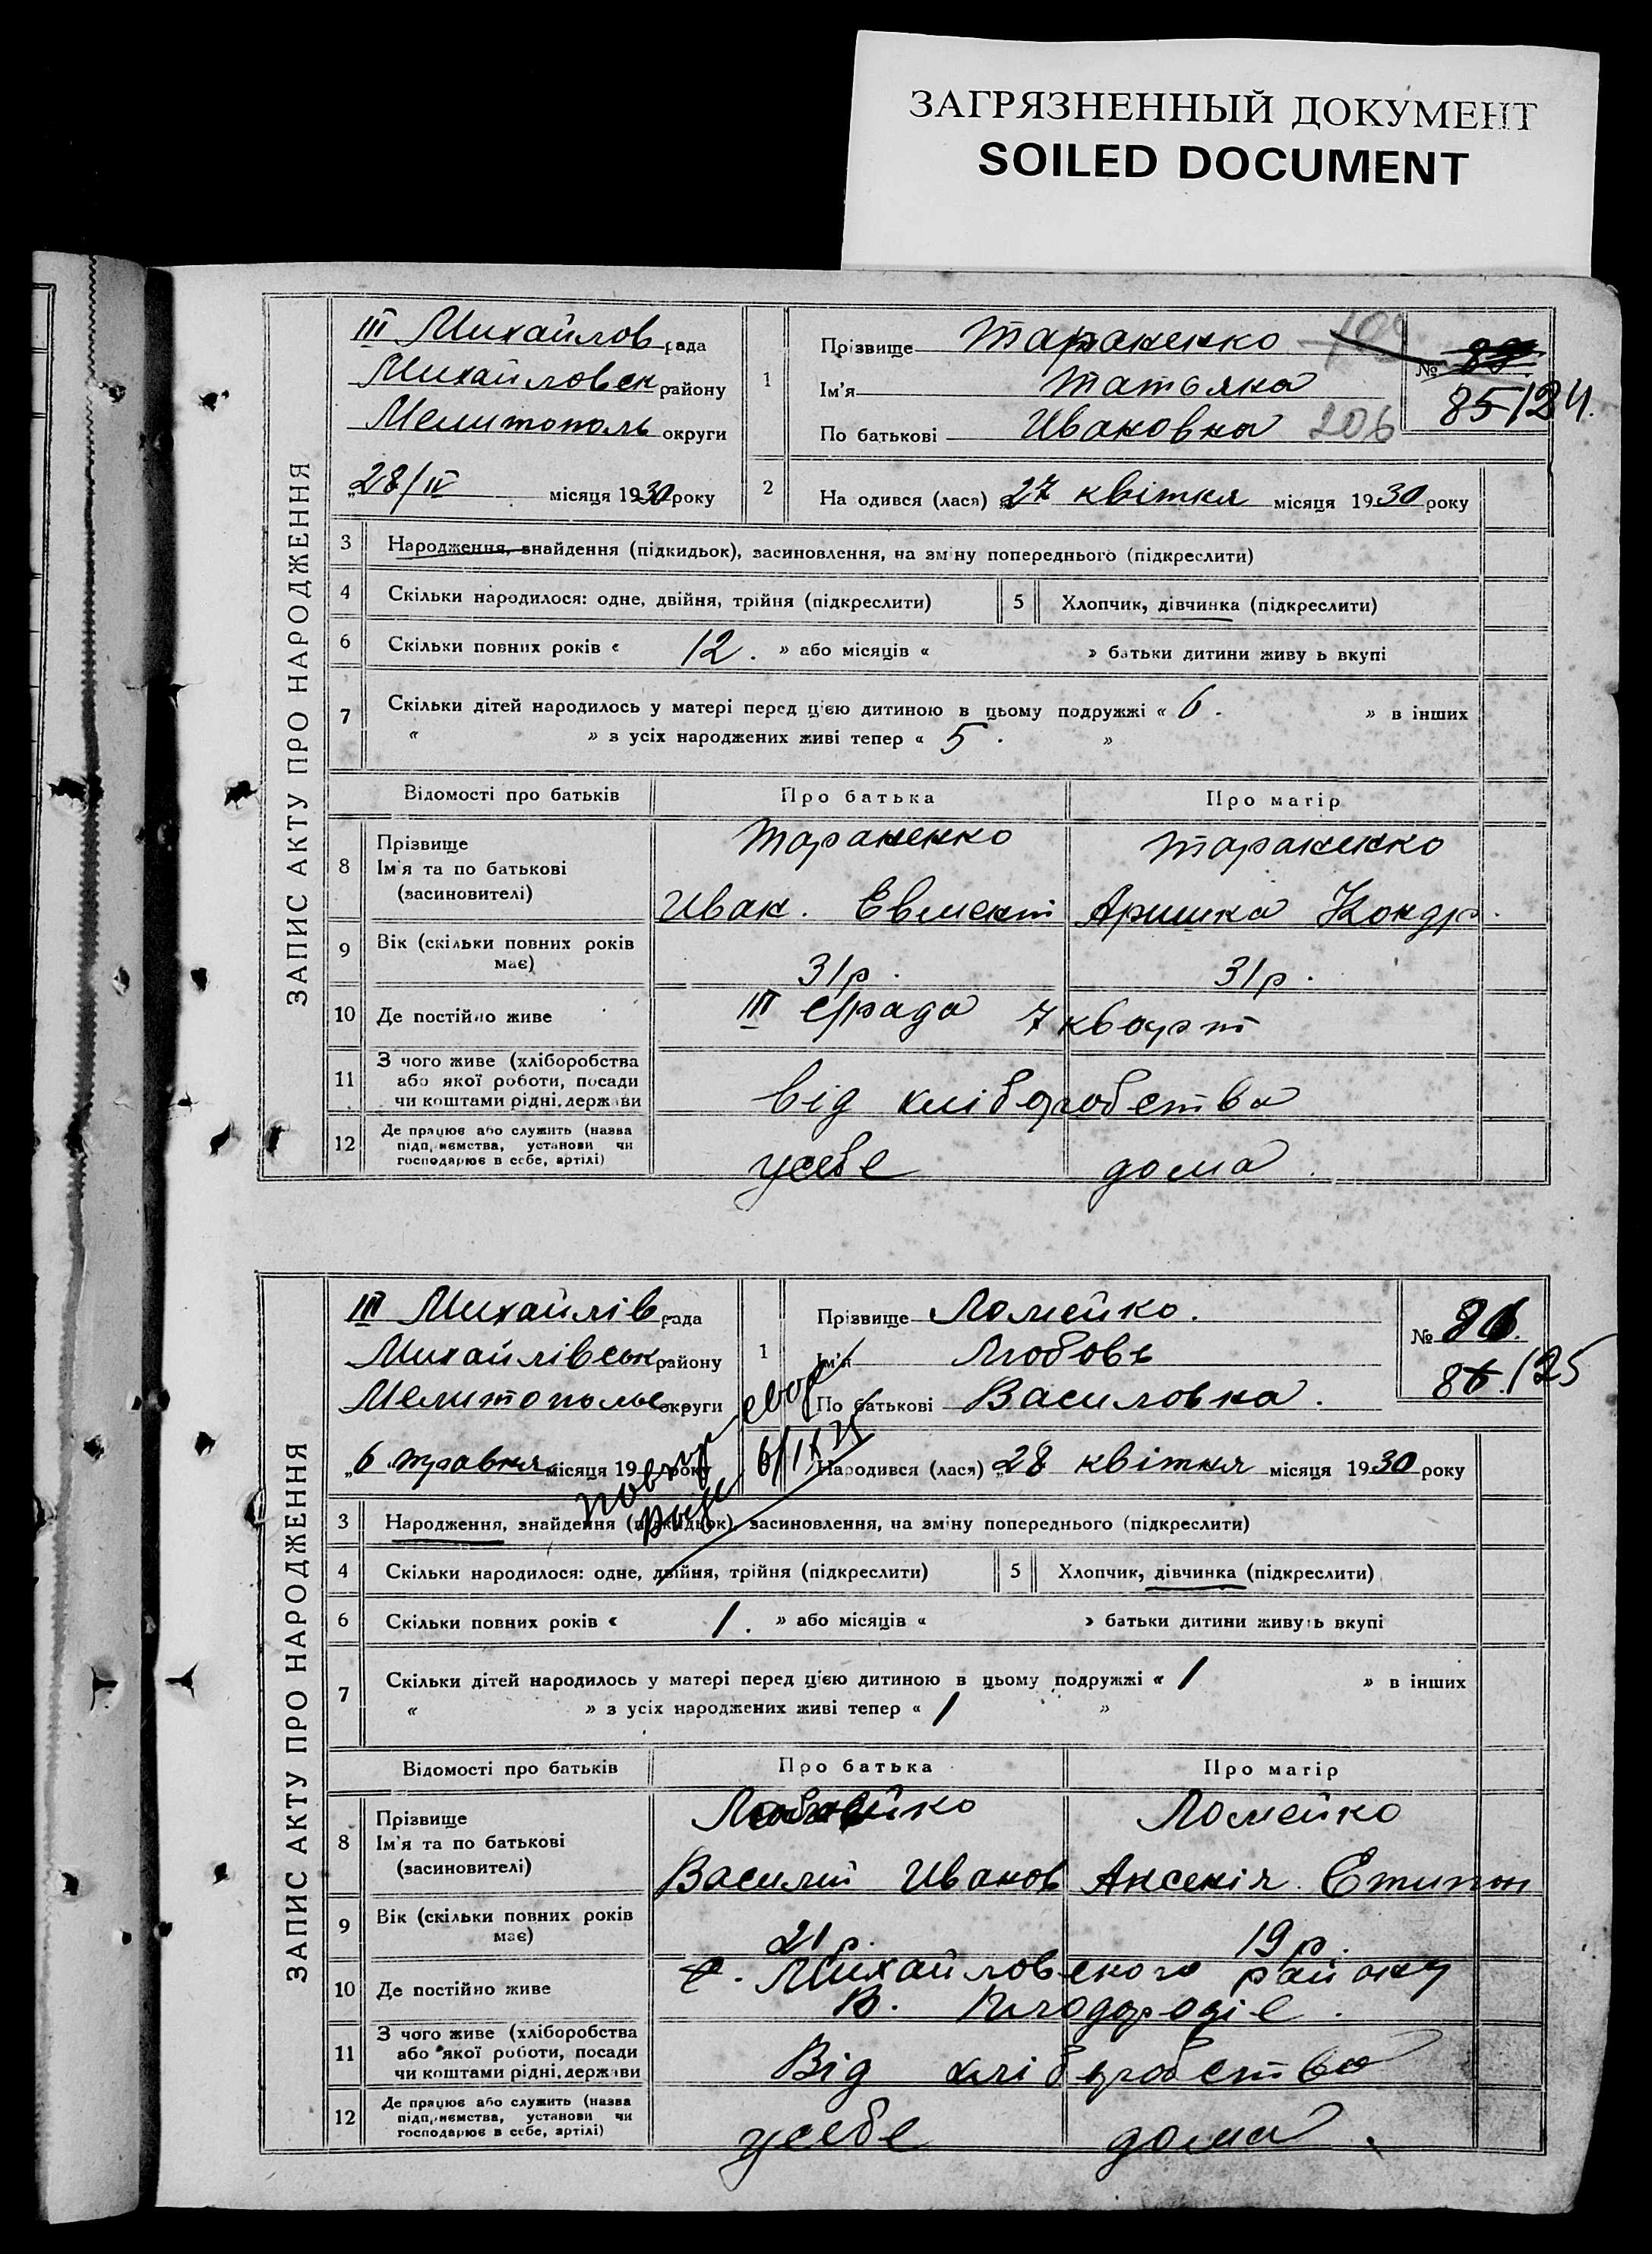 ЗАГРЯЗНЕННЫЙ ДОКУМЕНТ
SOILED DOCUMENT
ЗАПИС АКТУ ПРО НАРОДЖЕННЯ
III Михайлов рада
Михайловск району
Мелитополь округи
„28/IV місяця 1930 року
1
Прізвище Тараненко
Ім'я Татьяна
По батькові Ивановна 206
№
85/124.
2
На одився (лася) „27 квітня місяця 1930 року
3 Народження, знайдення (підкидьок), засиновлення, на зміну попереднього (підкреслити)
4 Скільки народилося: одне, двійня, трійня (підкреслити) 5 Хлопчик, дівчинка (підкреслити)
6 Скільки повних років « 12. » або місяців « » батьки дитини живу ь вкупі
7 Скільки дітей народилось у матері перед цією дитиною в цьому подружжі « 6. » в інших
« » з усіх народжених живі тепер « 5. »
Відомості про батьків Про батька Про матір
8 Прізвище
Ім'я та по батькові
(засиновителі)
Тараненко Тараненко
Иван. Евмент Аришка Кондр.
9 Вік (скільки повних років
має)
31р. 31р.
10 Де постійно живе III с/рада 7 кварт
11 З чого живе (хліборобства
або якої роботи, посади
чи коштами рідні, держави
від хліборобства
12 Де працює або служить (назва
підприємства, установи чи
господарює в себе, артілі)
усебе дома.
ЗАПИС АКТУ ПРО НАРОДЖЕННЯ
III Михайлів рада
Михайлівськ району
Мелитопольс округи
„6 травня місяця 19 року
1
Прізвище Ломейко.
Ім'я Любовь
По батькові Василовна.
№ 86.
86./125
Народився (лася) „28 квітня місяця 1930 року
3 Народження, знайдення (підкидьок), засиновлення, на зміну попереднього (підкреслити)
4 Скільки народилося: одне, двійня, трійня (підкреслити) 5 Хлопчик, дівчинка (підкреслити)
6 Скільки повних років « 1. » або місяців « » батьки дитини живуть вкупі
7 Скільки дітей народилось у матері перед цією дитиною в цьому подружжі « 1 » в інших
« » з усіх народжених живі тепер « 1 »
Відомості про батьків Про батька Про матір
8 Прізвище
Ім'я та по батькові
(засиновителі)
Ломейко Ломейко
Василий Иванов Аксенія
9 Вік (скільки повних років
має)
21р. 19р.
10 Де постійно живе
с. Михайловского району
В. Плодородіе.
11 З чого живе (хліборобства
або якої роботи, посади
чи коштами рідні, держави
Від хліборобства
12 Де працює або служить (назва
підприємства, установи чи
господарює в себе, артілі)
усебе дома.